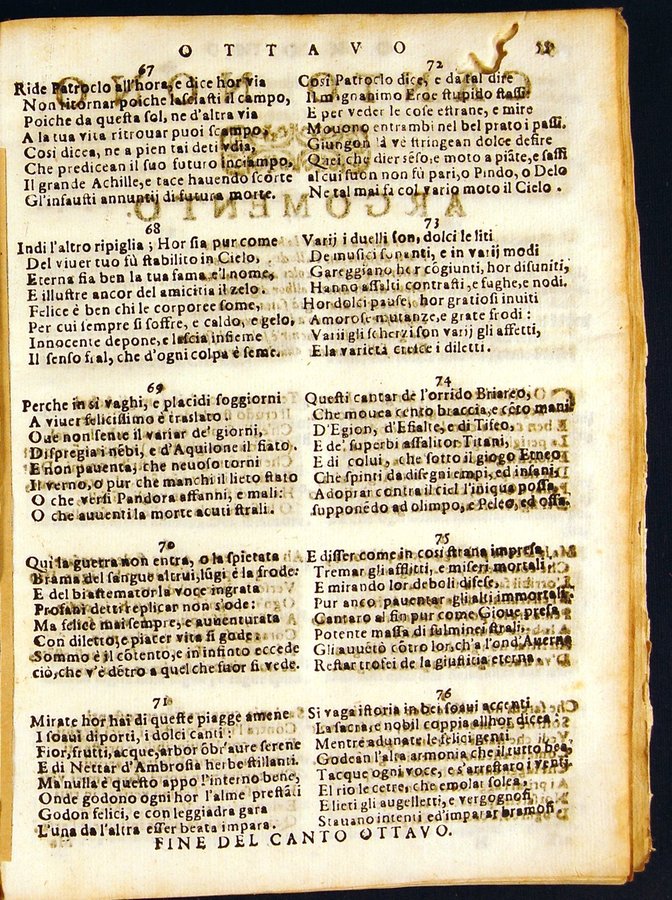 OTTAVO
67
Ride Patroclo all'hora, e dice hor via
Non ritornar poiche lasciasti il campo,
Poiche da questa sol, ne d'altra via
A la tua vita ritrouar puoi scampo,
Cosi dicea, ne a pien tai deti vdia,
Che predicean il suo futuro inciampo,
Il grande Achille, e tace hauendo scorte
Gl'infausti annuntij di futura morte.
68
Indi l'altro ripiglia; Hor sia pur come
Del viuer tuo sù stabilito in Cielo,
Eterna fia ben la tua fama e'l nome,
E illustre ancor del amicitia il zelo.
Felice è ben chi le corporee some,
Per cui sempre si soffre, e caldo, e gelo,
Innocente depone, e lascia insieme
Il senso fral, che d'ogni colpa è seme.
69
Perche in sì vaghi, e placidi soggiorni
A viuer felicissimo è traslato.
Oue non sente il variar de' giorni,
Dispregia i nēbi, e d'Aquilone il fiato.
E non pauenta, che neuoso torni
Il verno, o pur che manchi il lieto stato
O che versi Pandora affanni, e mali:
O che auuenti la morte acuti strali.
70
Qui la guerra non entra, o la spietata
Brama del sangue altrui, lūgi è la frode:
E del biastemator la voce ingrata
Profani detti replicar non s'ode:
Ma felice mai sempre, e auuenturata
Con diletto, e piacer vita si gode:
Sommo è il cōtento, e in infinto eccede
ciò, che v'è dētro a quel che fuor si vede.
71
Mirate hor hai di queste piagge amene
I soaui diporti, i dolci canti:
Fior, frutti, acque, arbor ōbr'aure serene
E di Nettar d'Ambrosia herbe stillanti.
Ma nulla è questo appo l'interno bene,
Onde godono ogni hor l'alme prestāti
Godon felici, e con leggiadra gara
L'una da l'altra esser beata impara.
72
Cosi Patroclo dice, e da tal dire
Il magnanimo Eroe stupido stassi:
E per veder le cose estrane, e mire
Mouono entrambi nel bel prato i passi.
Giungon là ve stringean dolce desire
Quei, che dier sēso, e moto a piāte, e sassi
al cui suon non fù pari, o Pindo, o Delo
Ne tal mai fa col vario moto il Cielo.
73
Varij i duelli son, dolci le liti
De musici sonanti, e in varij modi
Gareggiano hor cōgiunti, hor disuniti,
Hanno assalti contrasti, e fughe, e nodi.
Hor dolci pause, hor gratiosi inuiti
Amorose mutanze, e grate frodi:
Varij gli scherzi son varij gli affetti,
E la varietà cresce i diletti.
74
Questi cantar de l'orrido Briareo,
Che mouea cento braccia, e cēto mani
D'Egion, d'Efialte, e di Tifeo,
E de' superbi assalitor Titani,
E di colui, che sotto il giogo Etneo
Che spinti da disegni empi, ed insani,
Adoprar contra il ciel l'iniqua possa,
supponēdo ad olimpo, e Peleo, ed ossa.
75
E disser come in cosi strana impresa
Tremar gli afflitti, e miseri mortali
E mirando lor deboli difese,
Pur anco pauentar gli alti immortali.
Cantaro al fin pur come Gioue presa
Potente massa di fulminei strali,
Gli auuētò cōtro lor, ch'a l'ond'Auerna
Restar trofei de la giustitia eterna.
76
Si vaga istoria in bei soaui accenti
La sacra, e nobil coppia allhor dicea
Mentre adunate le felici genti
Godean l'alta armonia che il tutto bea,
Tacque ogni voce, e s'arrestaro i venti
El rio le cetre, che emolar solea,
E lieti gli augelletti, e vergognosi
Stauano intenti ed'imparar bramosi
FINE DEL CANTO OTTAVO.